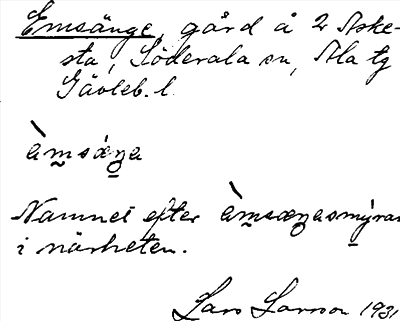 Emsänge, gård å 2 Aske-
sta, Söderala sn, Ala tg
Gävleb. l.
àm̰sæŋa
Namnet efter àm̰sæŋasmýran
i närheten.
Lars Larsson 1931